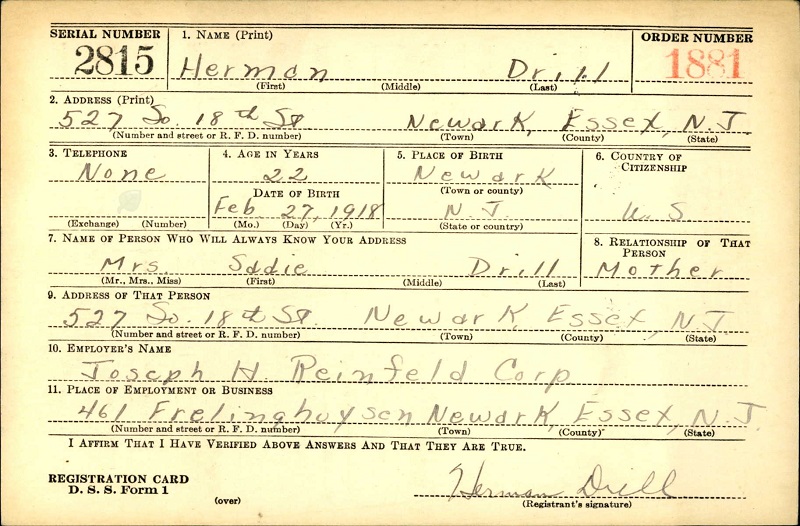 SERIAL NUMBER 1. NAME (Print) ORDER NUMBER
2815 Herman Drill 1881
(First) (Middle) (Last)
2. ADDRESS (Print)
527 So. 18th St Newark, Essex, N.J.
(Number and street or R. F. D. number) (Town) (County) (State)
3. TELEPHONE 4. AGE IN YEARS 5. PLACE OF BIRTH 6. COUNTRY OF CITIZENSHIP
None 22 Newark
DATE OF BIRTH (Town or county)
Feb. 27, 1918 N.J. U.S.
(Exchange) (Number) (Mo.) (Day) (Yr.) (State or country)
7. NAME OF PERSON WHO WILL ALWAYS KNOW YOUR ADDRESS 8. RELATIONSHIP OF THAT PERSON
Mrs. Sadie Drill Mother
(Mr., Mrs., Miss) (First) (Middle) (Last)
9. ADDRESS OF THAT PERSON
527 So. 18th St. Newark, Essex, N.J.
(Number and street or R. F. D. number) (Town) (County) (State)
10. EMPLOYER'S NAME
Joseph H. Reinfeld Corp
11. PLACE OF EMPLOYMENT OR BUSINESS
461 Frelinghuysen Newark, Essex, N.J.
(Number and street or R. F. D. number) (Town) (County) (State)
I AFFIRM THAT I HAVE VERIFIED ABOVE ANSWERS AND THAT THEY ARE TRUE.
REGISTRATION CARD
D. S. S. Form 1 (over) Herman Drill
(Registrant's signature)